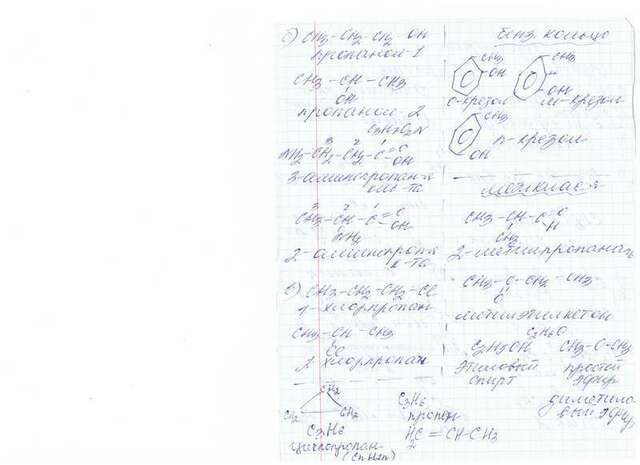 б) CH3 – CH2 – CH2 OH
пропанол-1
CH3 – CH – CH3
OH
пропанол 2
C3H7O2N
3 2 1
NH2-CH2-CH2-C=O
OH
3-аминопропан-я
к-та
3 2 1
CH3-CH-C=O
OH
NH2
2-аминопроп-я
к-та
в) CH3-CH2-CH2-Cl
1-хлорпропан
CH3-CH-CH3
Cl
2 хлорпропан
CH2
CH2 CH2
C3H6
циклопропан
(CnH2n)
C3H6
пропен
H2C=CH-CH3
бенз. кольцо
CH3
OH
о-крезол
CH3
OH
м-крезол
CH3
OH
п-крезол
межклассов
CH3-CH-C=O
H
CH3
2-метилпропаналь
CH3-C-CH2-CH3
O
метилэтилкетон
C2H6O
C2H5OH
этиловый
спирт
CH3-O-CH3
простой
эфир
диметило
вый эфир